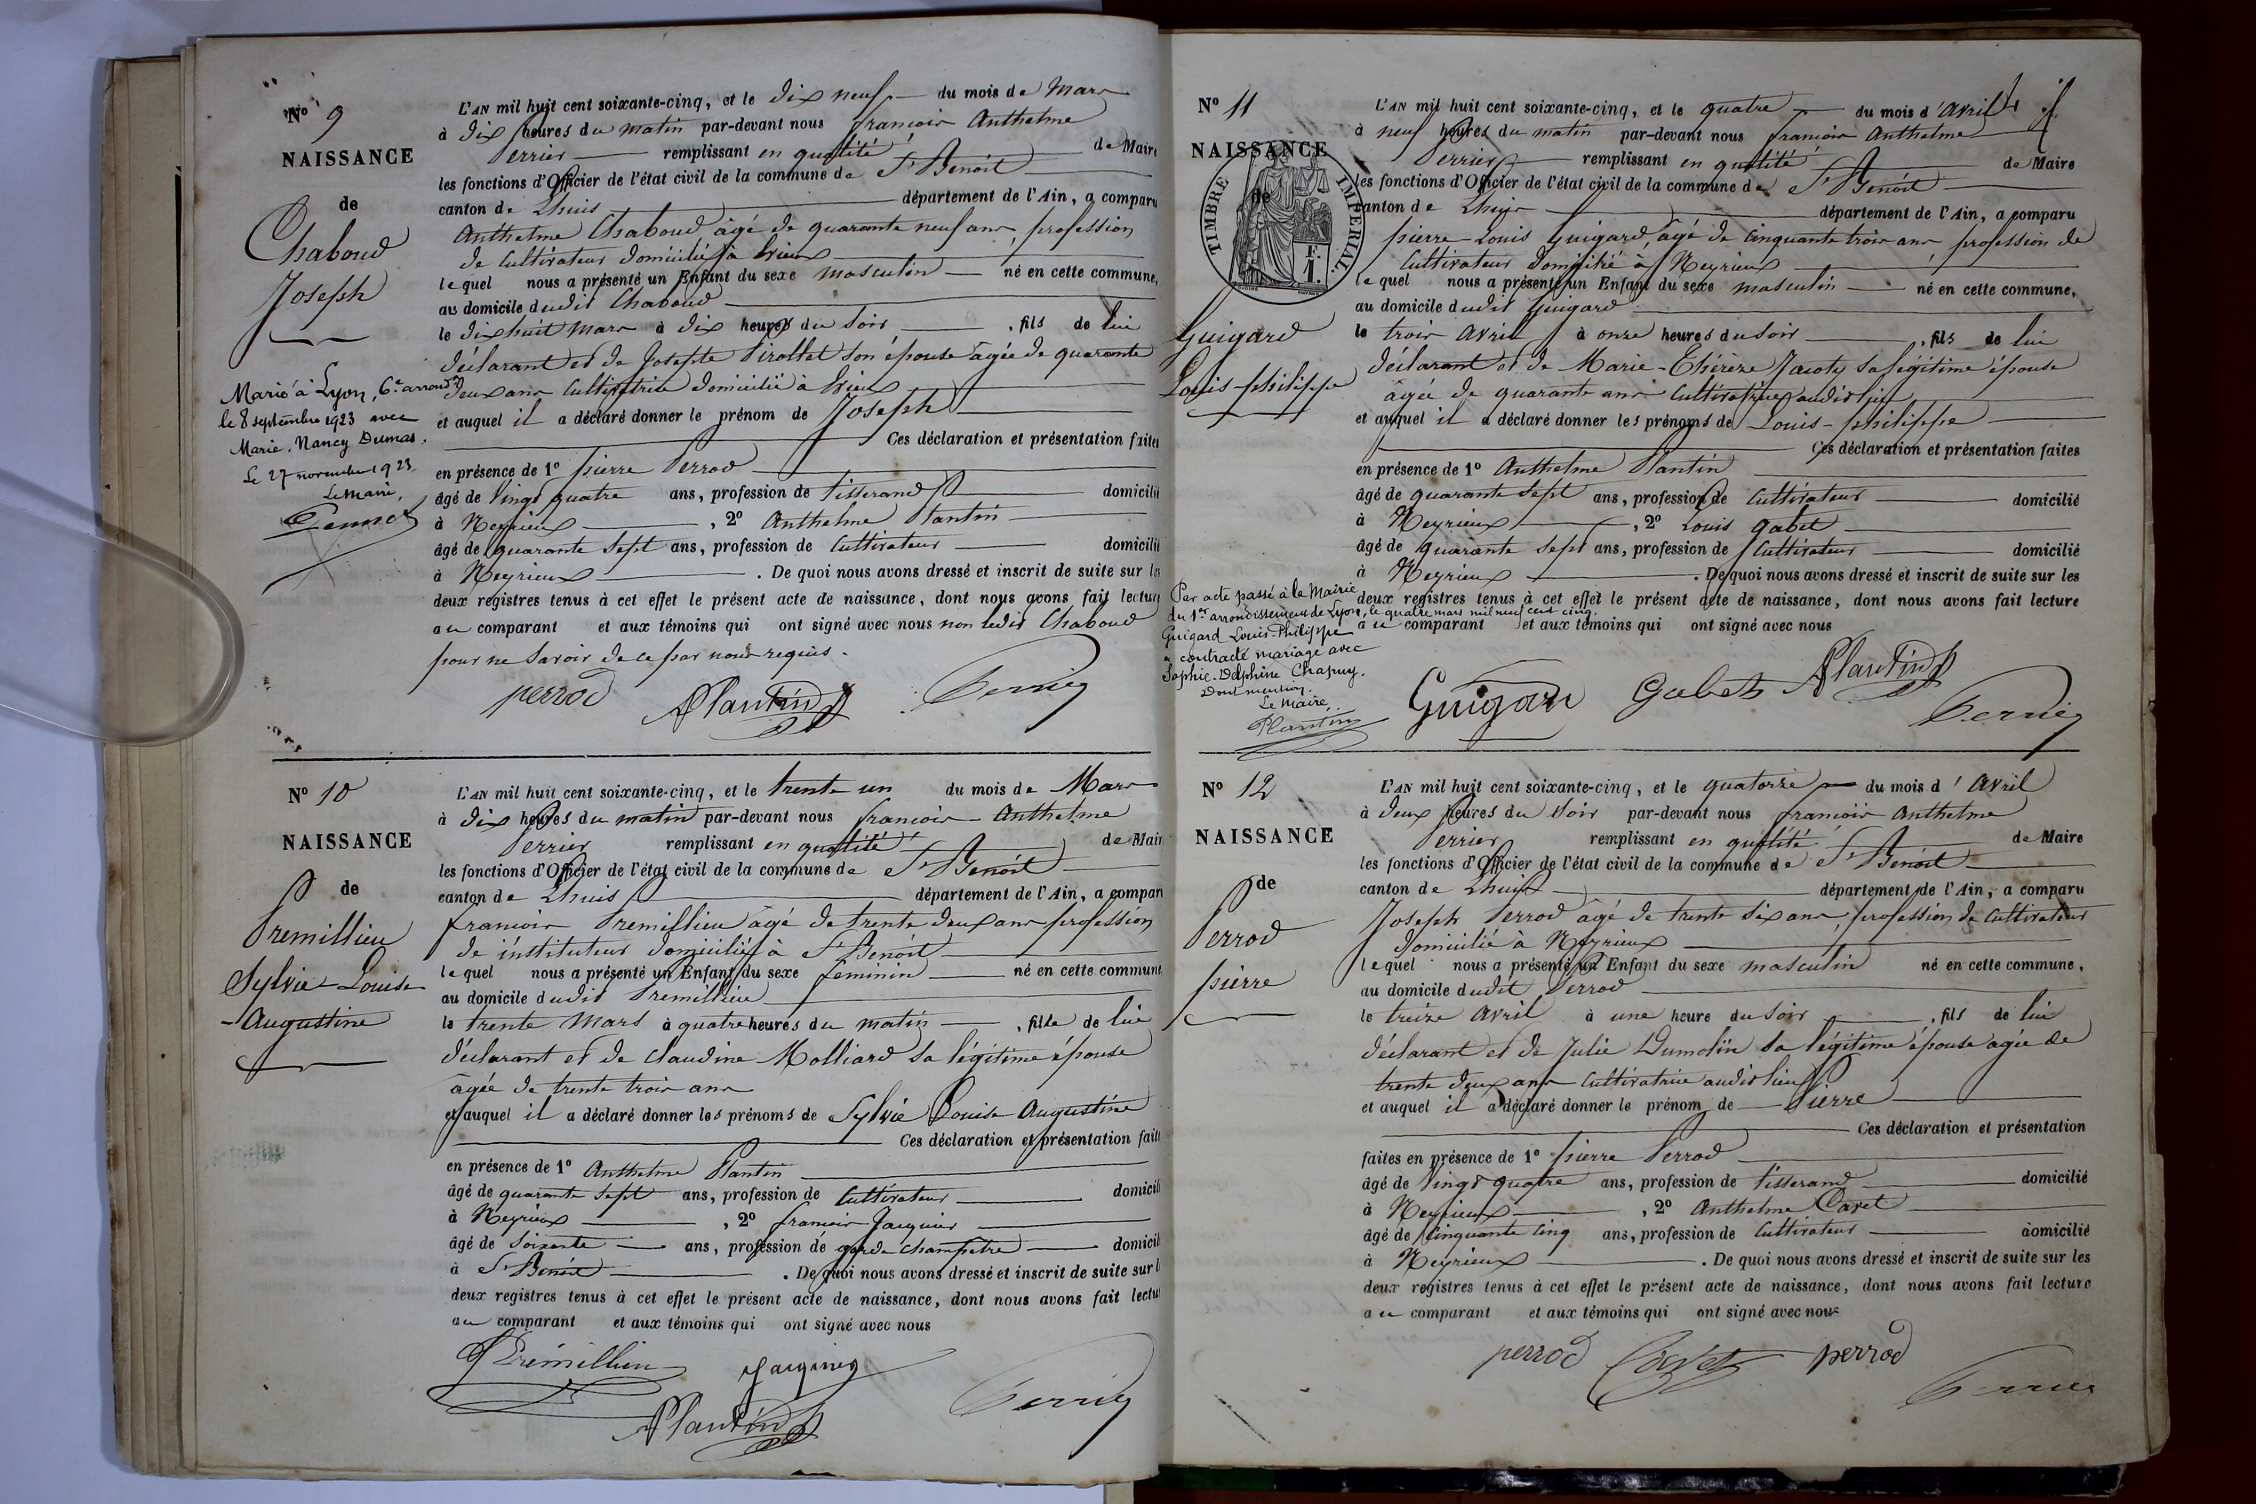 No 9
NAISSANCE
de
Chaboud
Joseph
Marié à Lyon, 6e arrondt
le 8 septembre 1923 avec
Marie. Nancy Dumas.
Le 27 novembre 1923
Le Maire,
L'AN mil huit cent soixante-cinq, et le dix neuf du mois de Mars
à dix heures du matin par-devant nous françois Anthelme
Perrier remplissant en qualité de Maire
les fonctions d'Officier de l'état civil de la commune de St Benoit
canton de Lhuis département de l'Ain, a comparu
Anthelme Chaboud âgé de quarante neuf ans, profession
de cultivateur domicilié à
le quel nous a présenté un Enfant du sexe masculin né en cette commune,
au domicile dudit Chaboud
le dixhuit mars à dix heures du soir, fils de lui
déclarant et de Josephte Pirollet son épouse âgée de quarante
deux ans cultivatrice domiciliée à
et auquel il a déclaré donner le prénom de Joseph
Ces déclaration et présentation faites
en présence de 1o pierre Perrod
âgé de vingt quatre ans, profession de tisserand domicilié
à Neyrieux, 2o Anthelme Plantin
âgé de quarante sept ans, profession de cultivateur domicilié
à Neyrieux. De quoi nous avons dressé et inscrit de suite sur les
deux registres tenus à cet effet le présent acte de naissance, dont nous avons fait lecture
au comparant et aux témoins qui ont signé avec nous non ledit Chaboud
pour ne savoir de ce par nous requis.
perrod APlantin Perrier
No 10
NAISSANCE
de
Premillieu
Sylvie Louise
Augustine
L'AN mil huit cent soixante-cinq, et le trente un du mois de Mars
à dix heures du matin par-devant nous françois Anthelme
Perrier remplissant en qualité de Mair
les fonctions d'Officier de l'état civil de la commune de St Benoit
canton de Lhuis département de l'Ain, a compar
françois Premillieu âgé de trente deux ans profession
de instituteur domicilié à St Benoit
le quel nous a présenté un Enfant du sexe féminin né en cette commune
au domicile dudit Premillieu
le trente Mars à quatre heures du matin, fille de lui
déclarant et de claudine Molliard sa légitime épouse
âgée de trente trois ans
et auquel il a déclaré donner les prénoms de Sylvie Louise Augustine
Ces déclaration et présentation faite
en présence de 1o Anthelme Plantin
âgé de quarante sept ans, profession de cultivateur domicili
à Neyrieux, 2o françois Jacquier
âgé de soixante ans, profession de garde champetre domicil
à St Benoit. De quoi nous avons dressé et inscrit de suite sur l
deux registres tenus à cet effet le présent acte de naissance, dont nous avons fait lectu
au comparant et aux témoins qui ont signé avec nous
Prémillieu
APlantin Perrier
No 11
NAISSANCE
de
TIMBRE IMPERIAL.
F.
1.
Guigard
Louis-philippe
Par acte passé à la Mairie
du 1er arrondissement de Lyon, le quatre mars mil neuf cent cinq.
Guigard Louis-Philippe
a contracté mariage avec
Sophie-Delphine Chapuy.
Dont mention.
Le Maire,
Plantin
L'AN mil huit cent soixante-cinq, et le quatre du mois d'avril
à neuf heures du matin par-devant nous françois Anthelme
Perrier remplissant en qualité de Maire
les fonctions d'Officier de l'état civil de la commune de St Benoit
canton de Lhuis département de l'Ain, a comparu
pierre-Louis Guigard, âgé de cinquante trois ans profession de
cultivateur domicilié à Neyrieux
le quel nous a présenté un Enfant du sexe masculin né en cette commune,
au domicile dudit Guigard
le trois avril à onze heures du soir, fils de lui
déclarant et de Marie-Thérèze Jacoty sa légitime épouse
âgée de quarante ans cultivatrice audit lieu
et auquel il a déclaré donner les prénoms de Louis-philippe
Ces déclaration et présentation faites
en présence de 1o Anthelme Plantin
âgé de quarante sept ans, profession de cultivateur domicilié
à Neyrieux, 2o Louis gabet
âgé de quarante sept ans, profession de cultivateur domicilié
à Neyrieux. De quoi nous avons dressé et inscrit de suite sur les
deux registres tenus à cet effet le présent acte de naissance, dont nous avons fait lecture
au comparant et aux témoins qui ont signé avec nous
Guigard Gabet APlantin Perrier
No 12
NAISSANCE
de
Perrod
pierre
L'AN mil huit cent soixante-cinq, et le quatorze du mois d'avril
à deux heures du soir par-devant nous françois Anthelme
Perrier remplissant en qualité de Maire
les fonctions d'Officier de l'état civil de la commune de St Benoit
canton de Lhuis département de l'Ain, a comparu
Joseph Perrod âgé de trente six ans, profession de cultivateur
domicilié à Neyrieux
le quel nous a présenté un Enfant du sexe masculin né en cette commune,
au domicile dudit Perrod
le treize avril à une heure du soir, fils de lui
déclarant et de Julie Dumolin sa légitime épouse agée de
trente deux ans cultivatrice audit lieu
et auquel il a déclaré donner le prénom de Pierre
Ces déclaration et présentation
faites en présence de 1o pierre Perrod
âgé de vingt quatre ans, profession de tisserand domicilié
à Neyrieux, 2o Anthelme Cavet
âgé de cinquante cinq ans, profession de cultivateur domicilié
à Neyrieux. De quoi nous avons dressé et inscrit de suite sur les
deux registres tenus à cet effet le présent acte de naissance, dont nous avons fait lecture
au comparant et aux témoins qui ont signé avec nous
perrod Cavet perrod
Perrier